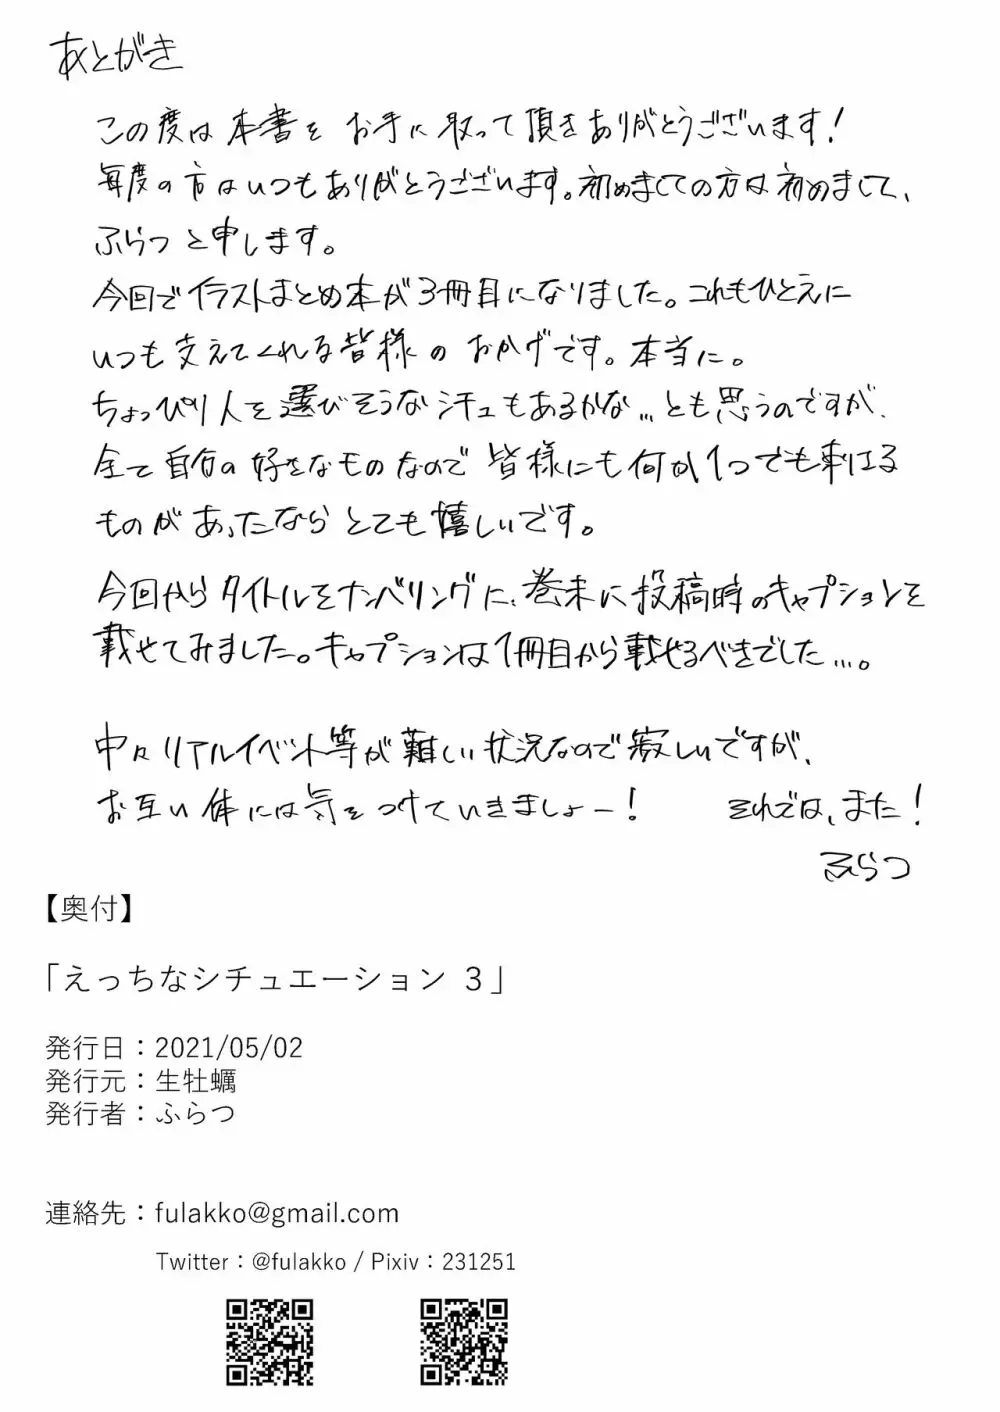 あとがき
この度は本書を お手に取って頂きありがとうございます！
毎度の方はいつもありがとうございます。初めましての方は初めまして、
ふらつと申します。
今回でイラストまとめ本が3冊目になりました。これもひとえに
いつも支えてくれる皆様のおかげです。本当に。
ちょっぴり人を選びそうなシチュもあるかな…とも思うのですが、
全て自分の好きなものなので皆様にも何か1つでも刺さる
ものがあったならとても嬉しいです。
今回からタイトルをナンバリングに、巻末に投稿時のキャプションを
載せてみました。キャプションは1冊目から載せるべきでした…。
中々リアルイベント等が難しい状況なので寂しいですが、
お互い体には気をつけていきましょー！ それでは、また！
ふらつ
【奥付】
「えっちなシチュエーション 3」
発行日：2021/05/02
発行元：生牡蠣
発行者：ふらつ
連絡先：fulakko@gmail.com
Twitter：@fulakko / Pixiv：231251